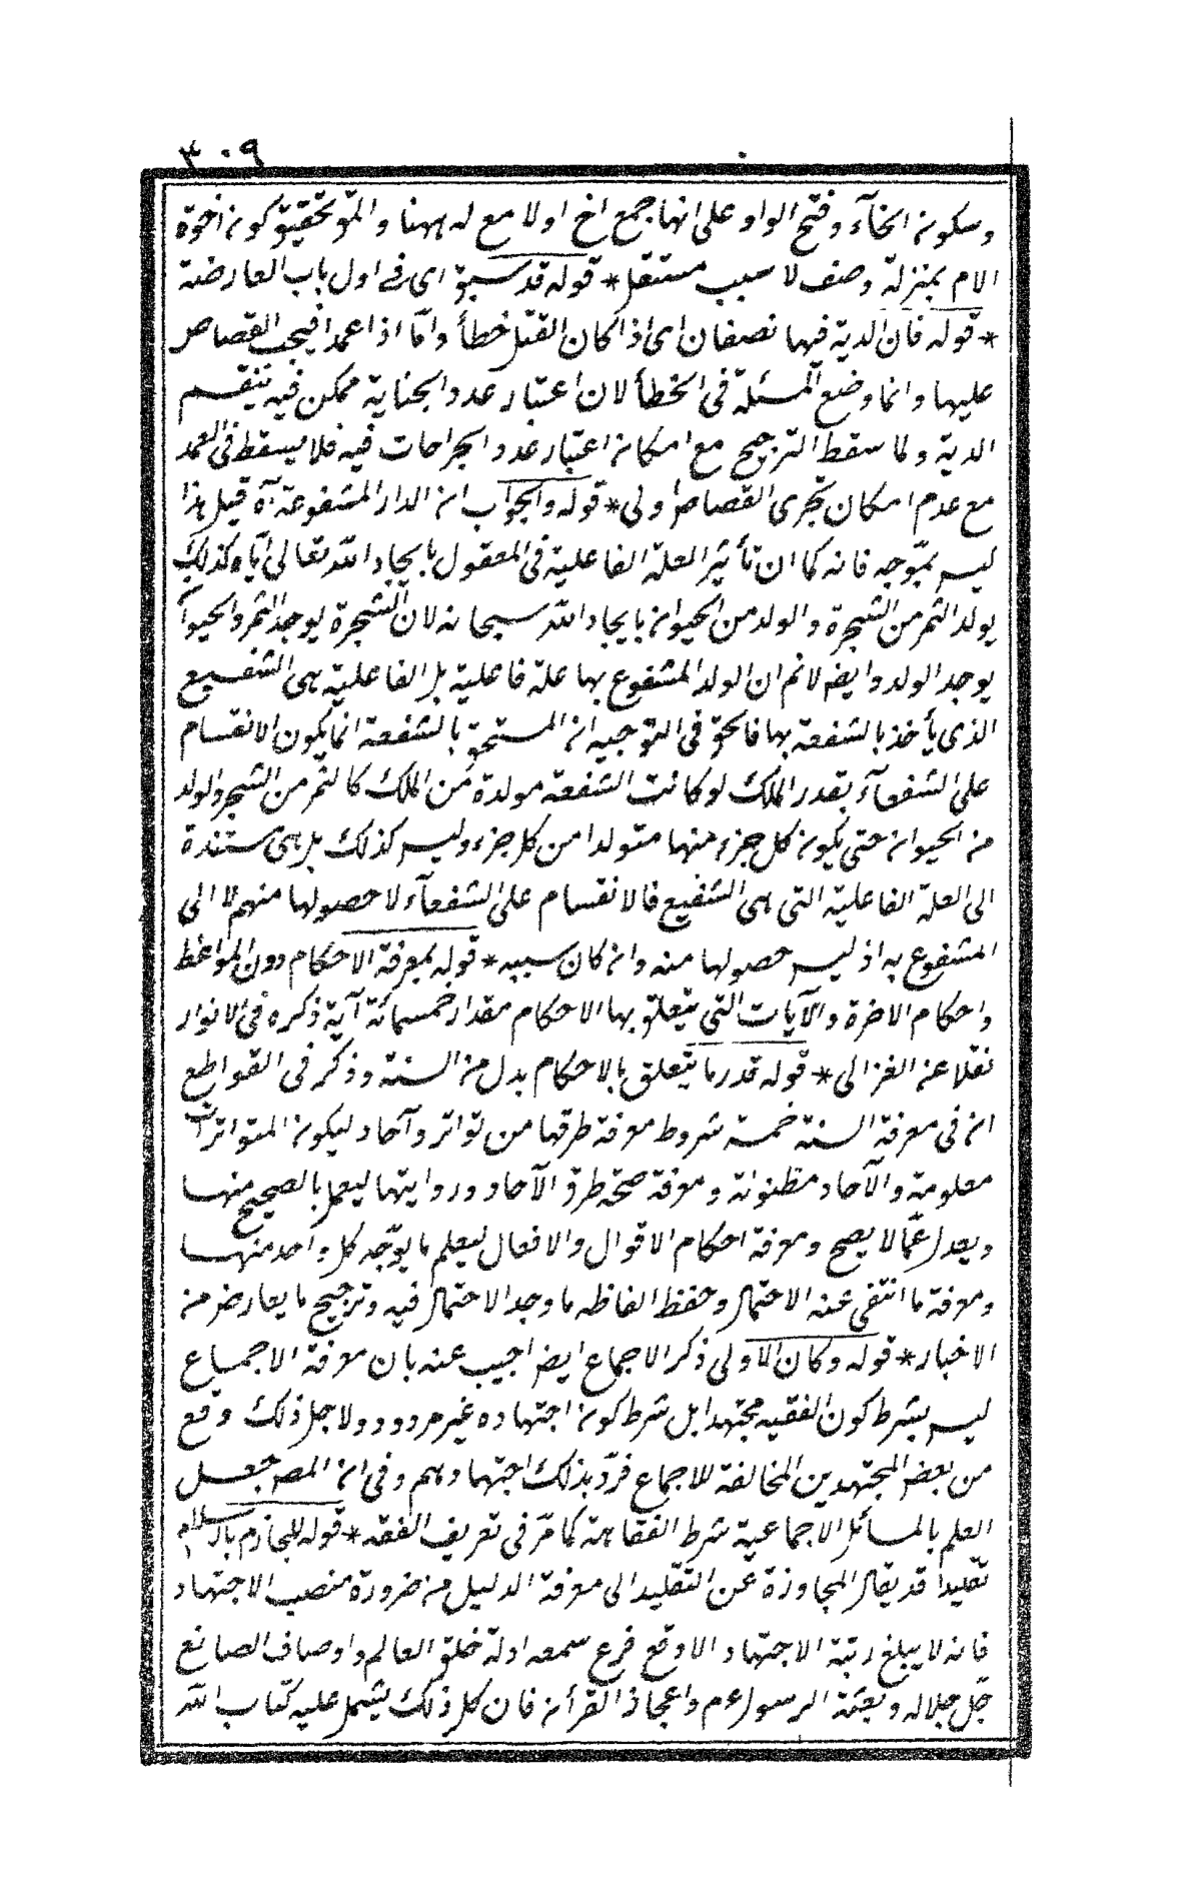 ٣٠٩
وسكون الخآء وفتح الواو على انها جمع اخ اولا مع له ههنا والمؤ تحقيق كون اخوة
الام بمنزلة وصف لا سبب مستقل * قوله قد سبق اى فى اول باب المعارضة
* قوله فان الدية فيها نصفان اى اذا كان القتل خطأ واما اذا عمدا فيجب القصاص
عليهما وانما وضع المسئلة فى الخطأ لان اعتبار عدد الجناية ممكن فيه بتقسيم
الدية ولما سقط الترجيح مع امكان اعتبار عدد الجراحات فيه فلا يسقط فى العمد
مع عدم امكان تجزى القصاص اولى * قوله والجواب ان الدار المشفوعة آه قيل هذا
ليس بموجه فانه كما ان تأثير العلة الفاعلية فى المعقول بايجاد الله تعالى اياه كذلك
يولد الثمر من الشجرة والولد من الحيوان بايجاد الله سبحانه لان الشجرة يوجد الثمر والحيوان
يوجد الولد وايضا لانم ان الولد المشفوع بها علة فاعلية بل الفاعلية هى الشفيع
الذى يأخذ بالشفعة بها فالحق فى التوجيه ان المستحق بالشفعة انما يكون الانقسام
على الشفعآء بقدر الملك لو كانت الشفعة مولدة من الملك كالثمر من الشجر والولد
من الحيوان حتى يكون كل جزء منها متولدا من كل جزء وليس كذلك بل هى مستندة
الى العلة الفاعلية التى هى الشفيع فالانقسام على الشفعآء لا حصولها منهم لا الى
المشفوع به اذ ليس حصولها منه وان كان سببه * قوله بمعرفة الاحكام دون المواعظ
واحكام الاخرة والآيات التى يتعلق بها الاحكام مقدار خمسمائة آية ذكره فى الانوار
نقلا عن الغزالى * قوله قدر ما يتعلق بالاحكام بدل من السنة وذكر فى القواطع
ان فى معرفة السنة خمسة شروط معرفة طرقها من تواتر وآحاد ليكون المتواترات
معلومة والآحاد مظنونة ومعرفة صحة طرق الآحاد ورواياتها ليعمل بالصحيح منها
ويعدل عما لا يصح ومعرفة احكام الاقوال والافعال ليعلم ما يوجه كل واحد منها
ومعرفة ما انتفى عنه الاحتمال وحفظ الفاظه ما وجد الاحتمال فيه وترجيح ما يعارض من
الاخبار * قوله وكان الاولى ذكر الاجماع ايضا اجيب عنه بان معرفة الاجماع
ليس بشرط كون الفقيه مجتهدا بل شرط كون اجتهاده غير مردود ولاجل ذلك وقع
من بعض المجتهدين المخالفة للاجماع فرد بذلك اجتهادهم وفى ان المص جعل
العلم بالمسائل الاجماعية شرط الفقاهة كما مر فى تعريف الفقه * قوله للجازم بالاسلام
تقليدا قد يقال المجاوزة عن التقليد الى معرفة الدليل من ضرورة منصب الاجتهاد
فانه لا يبلغ رتبة الاجتهاد الا وقع فرع سمعه ادلة خلق العالم واوصاف الصانع
جل جلاله وبعثة الرسول عم واعجاز القرأن فان كل ذلك يشمل عليه كتاب الله